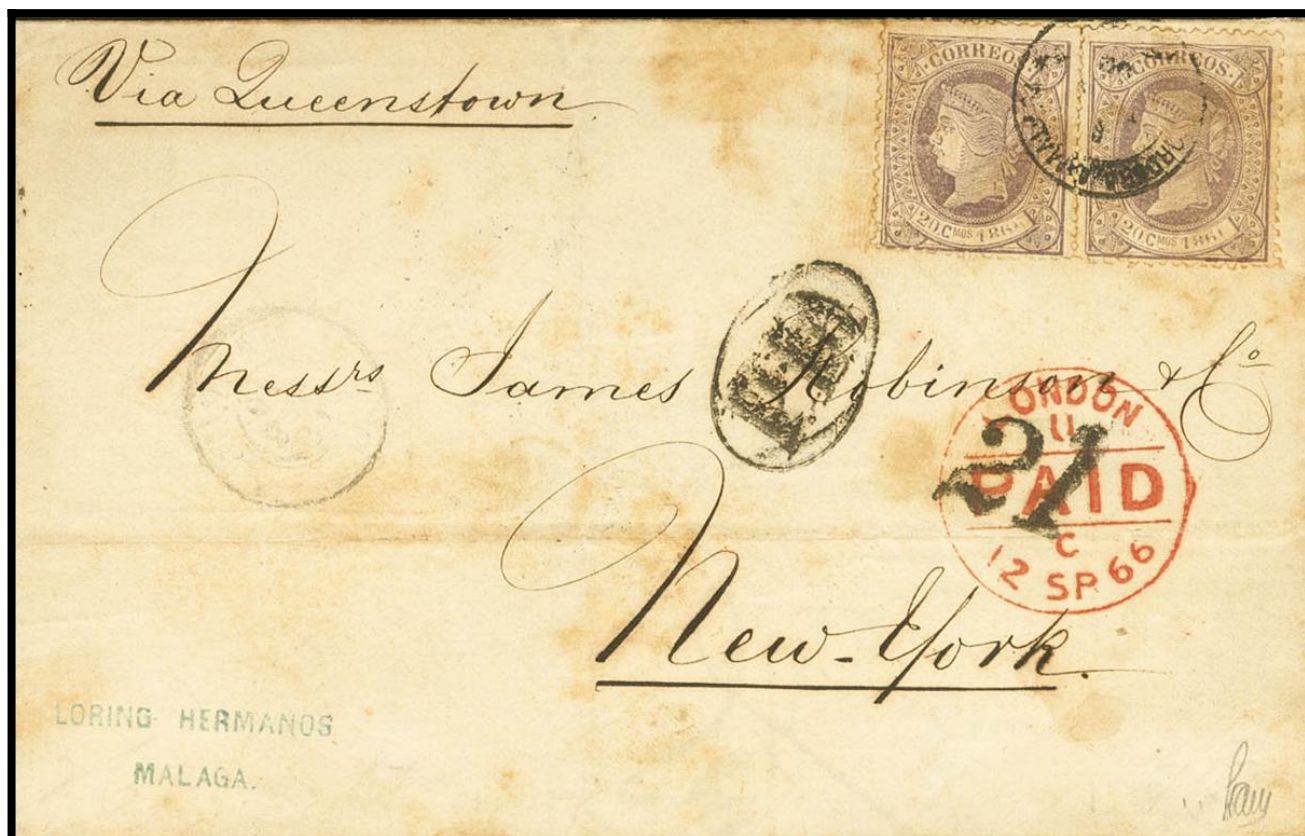 Via Queenstown
CORREOS
20 CMOS 1866
CORREOS
20 CMOS 1866
Messrs James Robinson & Co
LONDON
11
PAID
C
12 SP 66
21
New-York
LORING HERMANOS
MALAGA.